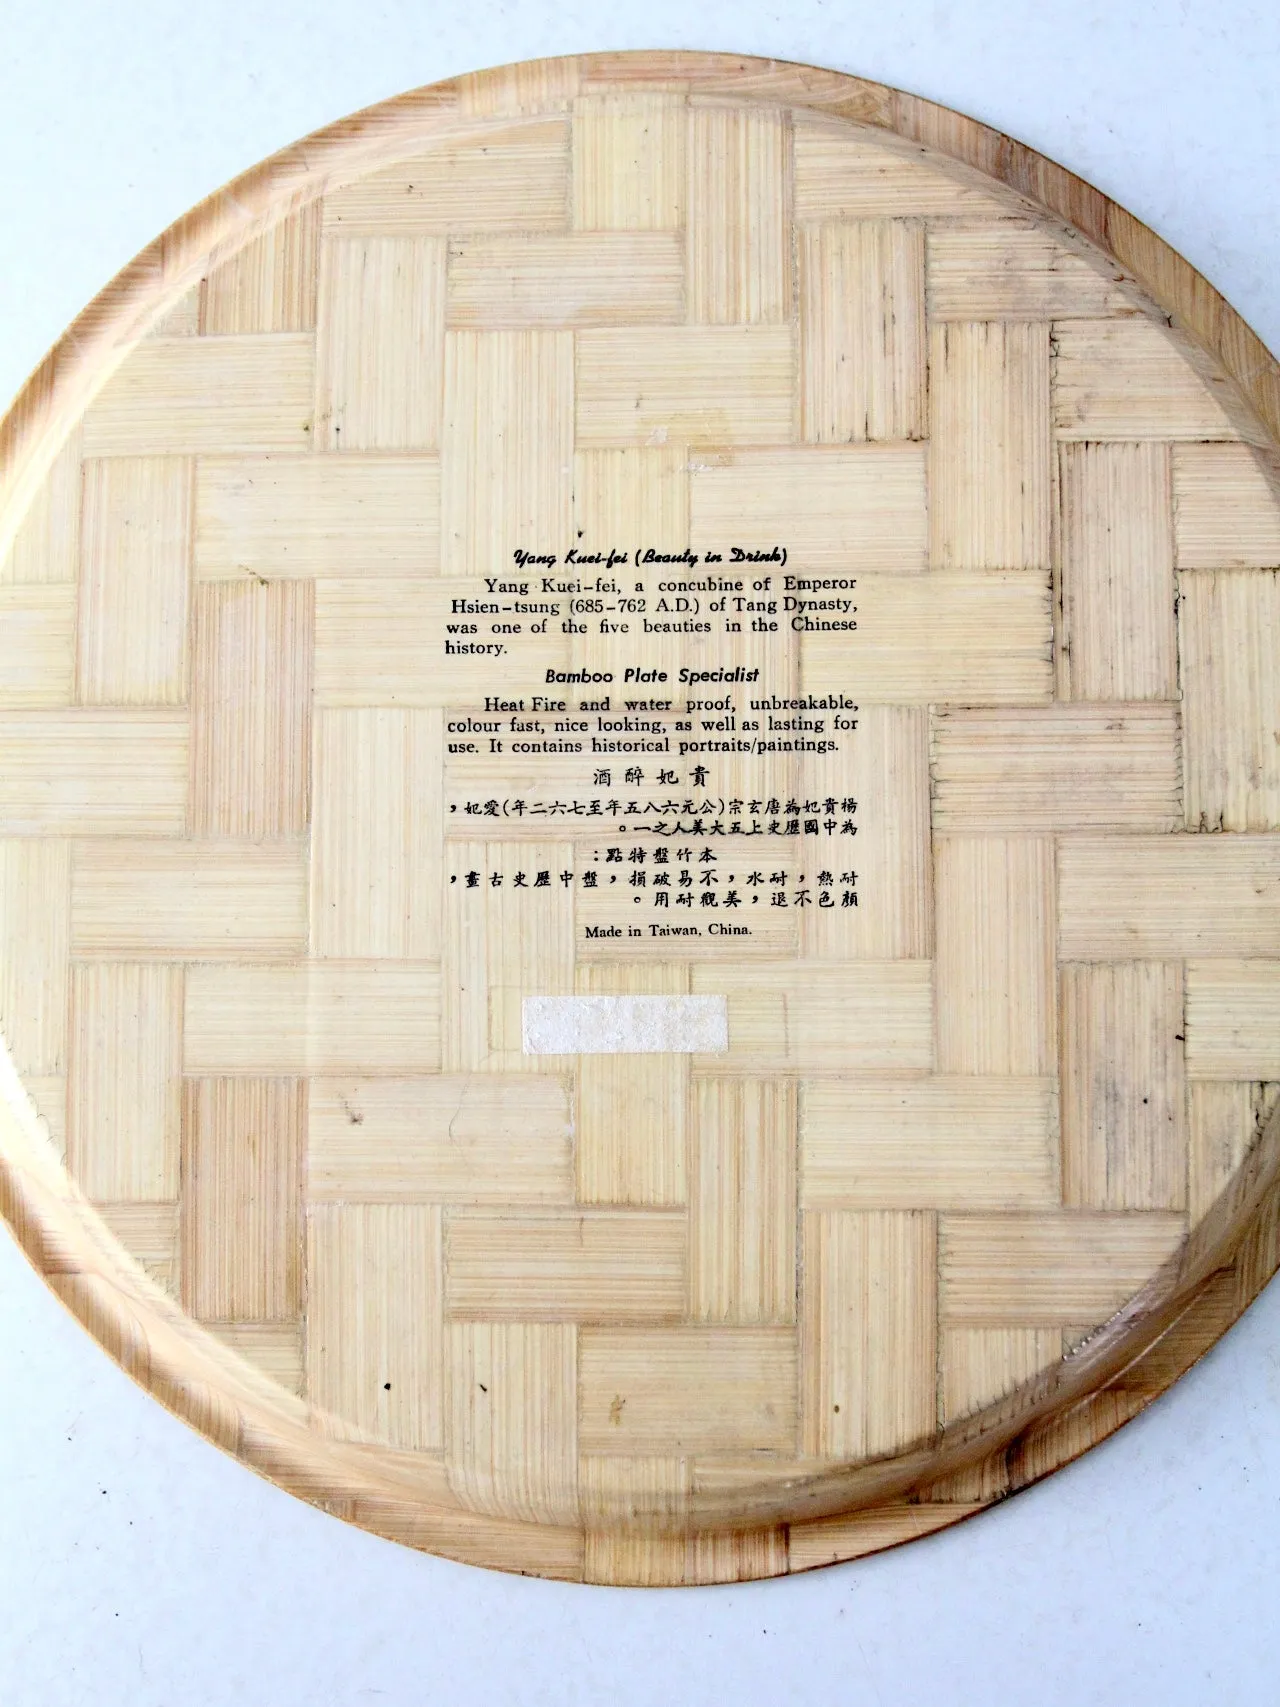 Yang Kuei-fei (Beauty in Drink)
Yang Kuei-fei, a concubine of Emperor
Hsien-tsung (685-762 A.D.) of Tang Dynasty,
was one of the five beauties in the Chinese
history.
Bamboo Plate Specialist
Heat Fire and water proof, unbreakable,
colour fast, nice looking, as well as lasting for
use. It contains historical portraits/paintings.
貴妃醉酒
楊貴妃為唐玄宗(公元六八五年至七六二年)愛妃，
為中國歷史上五大美人之一。
本竹盤特點：
耐熱，耐水，不易破損，盤中歷史古畫，
顏色不退，美觀耐用。
Made in Taiwan, China.